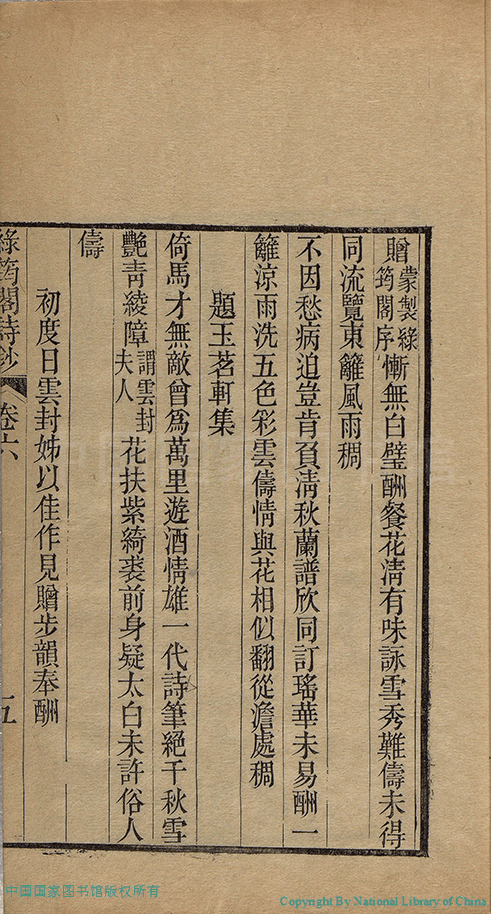 贈蒙製綠筠閣序慚無白璧酬餐花淸有味詠雪秀難儔未得
同流覽東籬風雨稠
不因愁病迫豈肯負淸秋蘭譜欣同訂瑤華未易酬一
籬涼雨洗五色彩雲儔情與花相似翻從澹處稠
題玉茗軒集
倚馬才無敵曾爲萬里遊酒情雄一代詩筆絕千秋雪
艷靑綾障謂雲封夫人花扶紫綺裘前身疑太白未許俗人
儔
初度日雲封姊以佳作見贈步韻奉酬
綠筠閣詩鈔
卷六
五
中国国家图书馆版权所有
Copyright By National Library of China